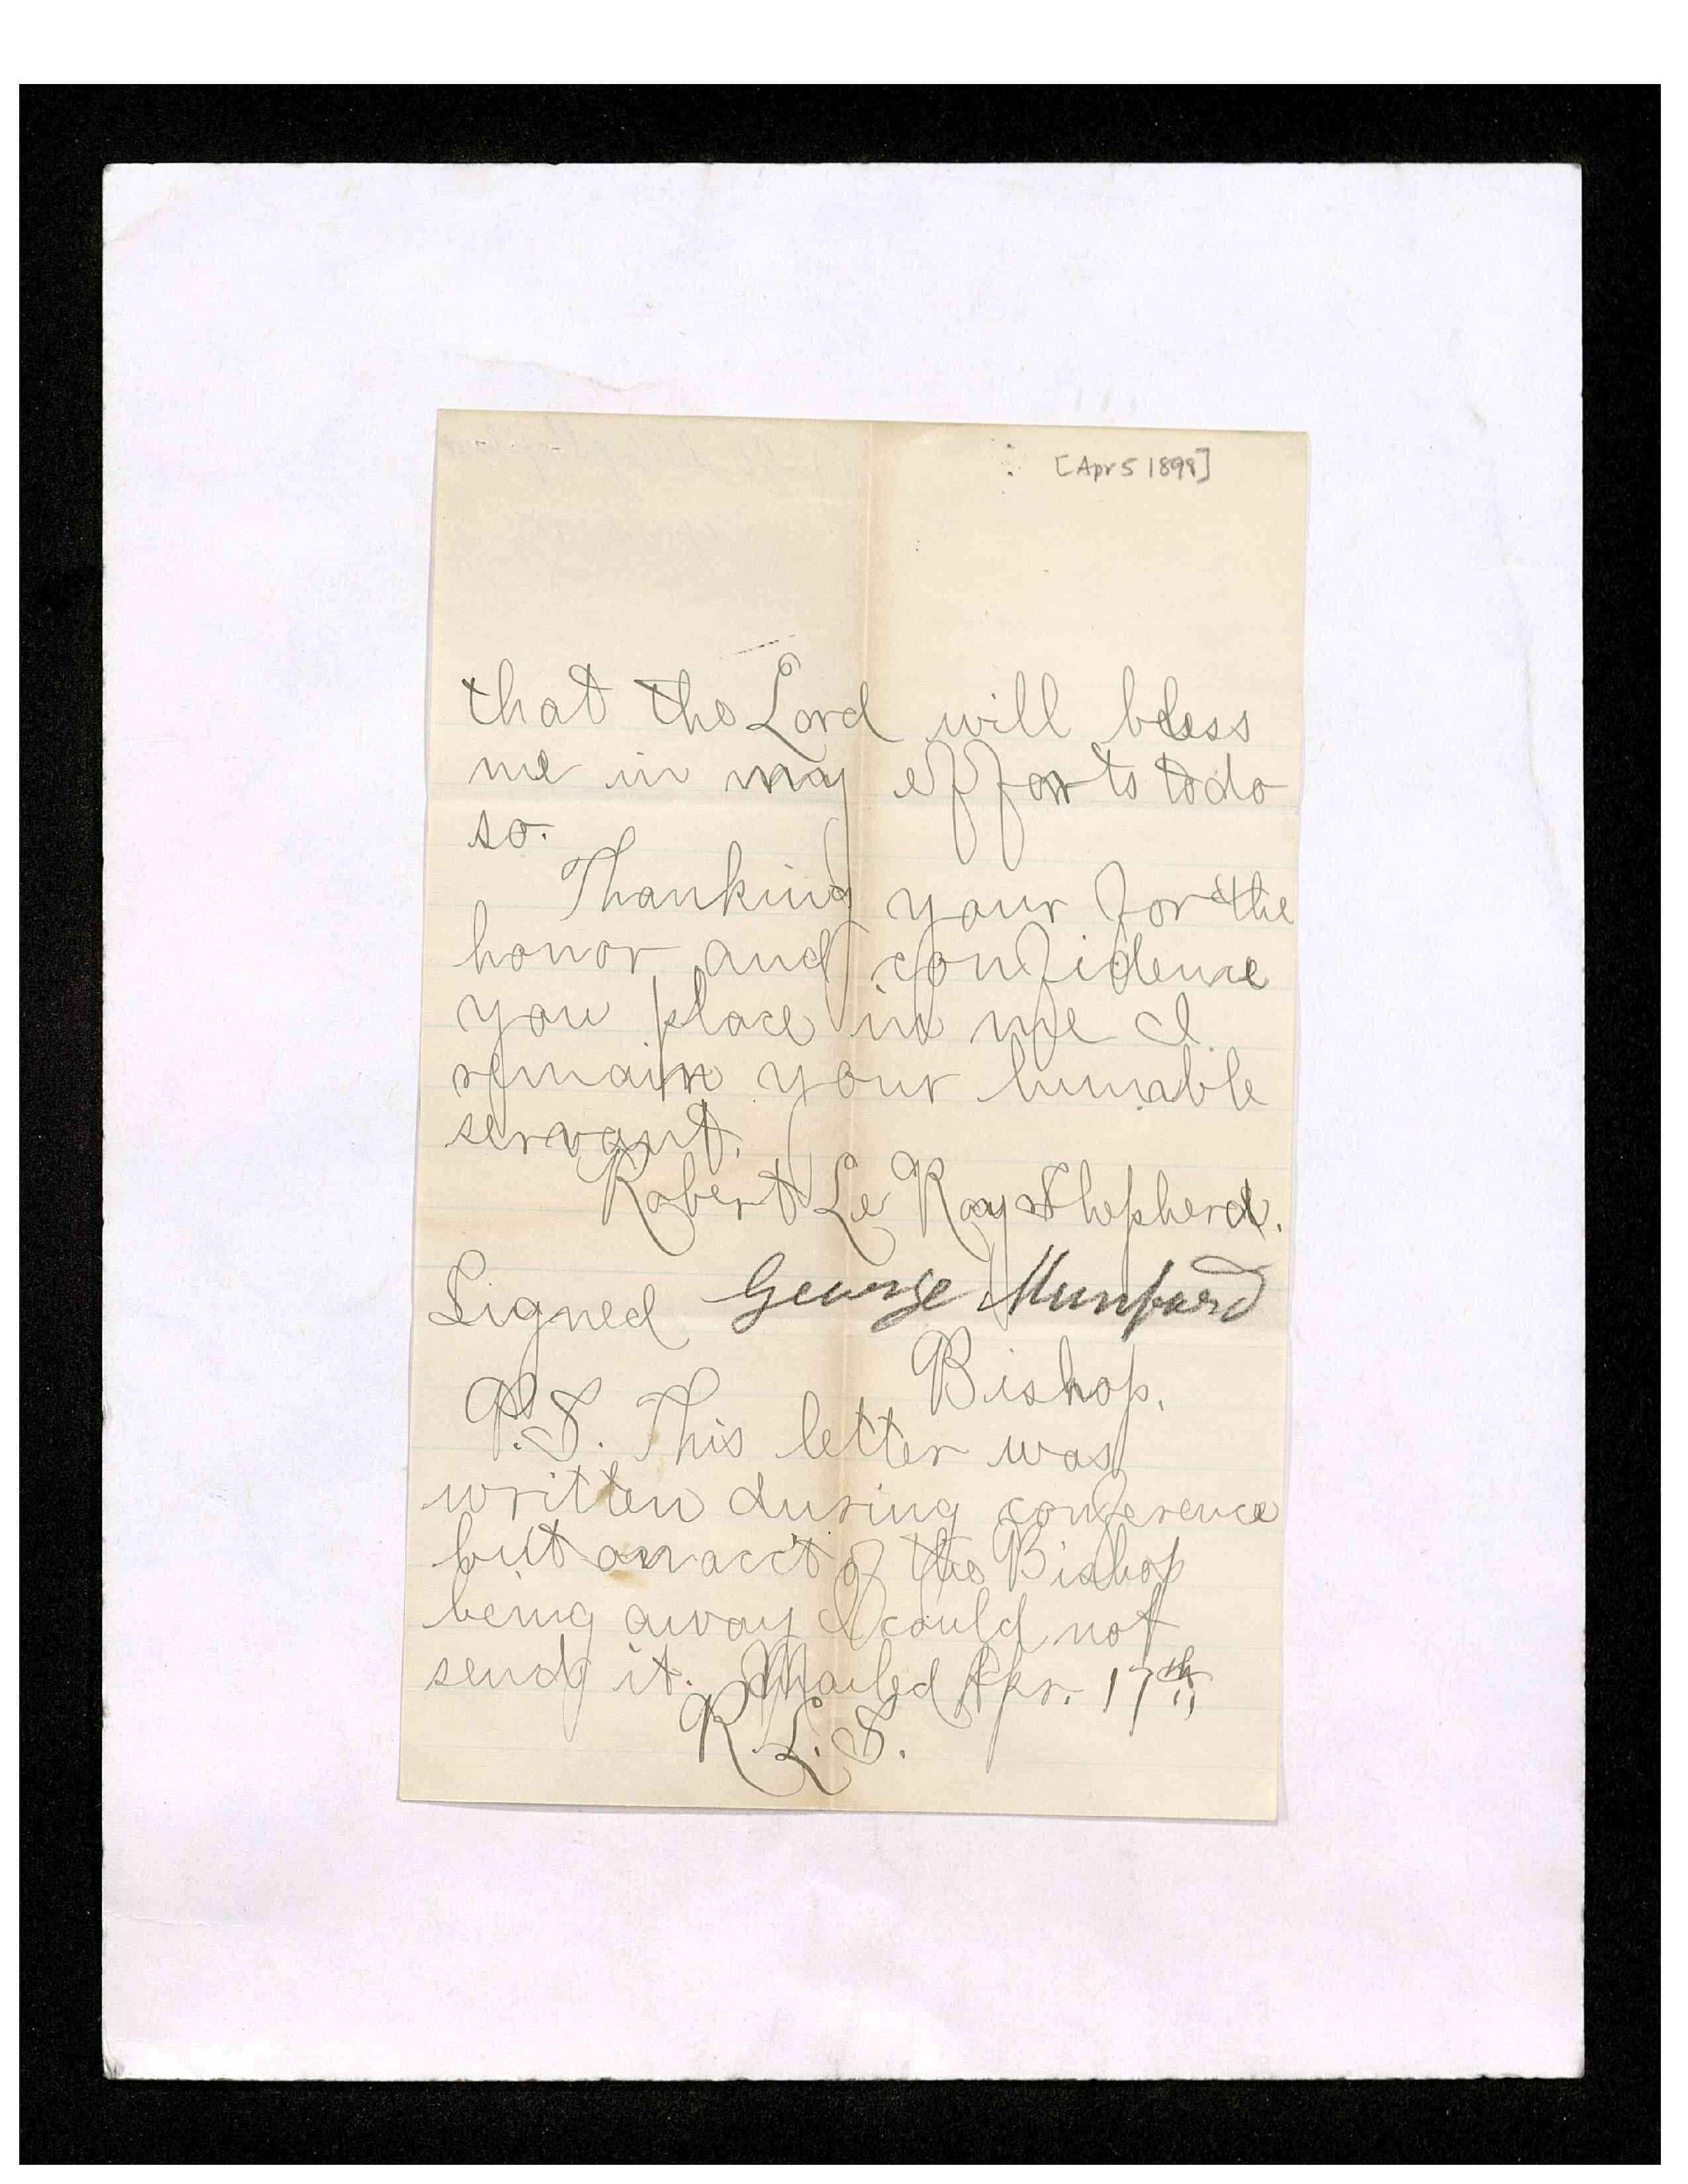 [Apr 5 1898]
that the Lord will bless
me in may efforts to do
so.
Thanking your for the
honor and confidence
you place in me I
remain your humble
servant.
Robert Le Roy Shepherd.
Signed George Munford
Bishop.
P.S. This letter was
written during conference
but on acct of the Bishop
being away I could not
send it. Mailed Apr. 17th
R. L. S.